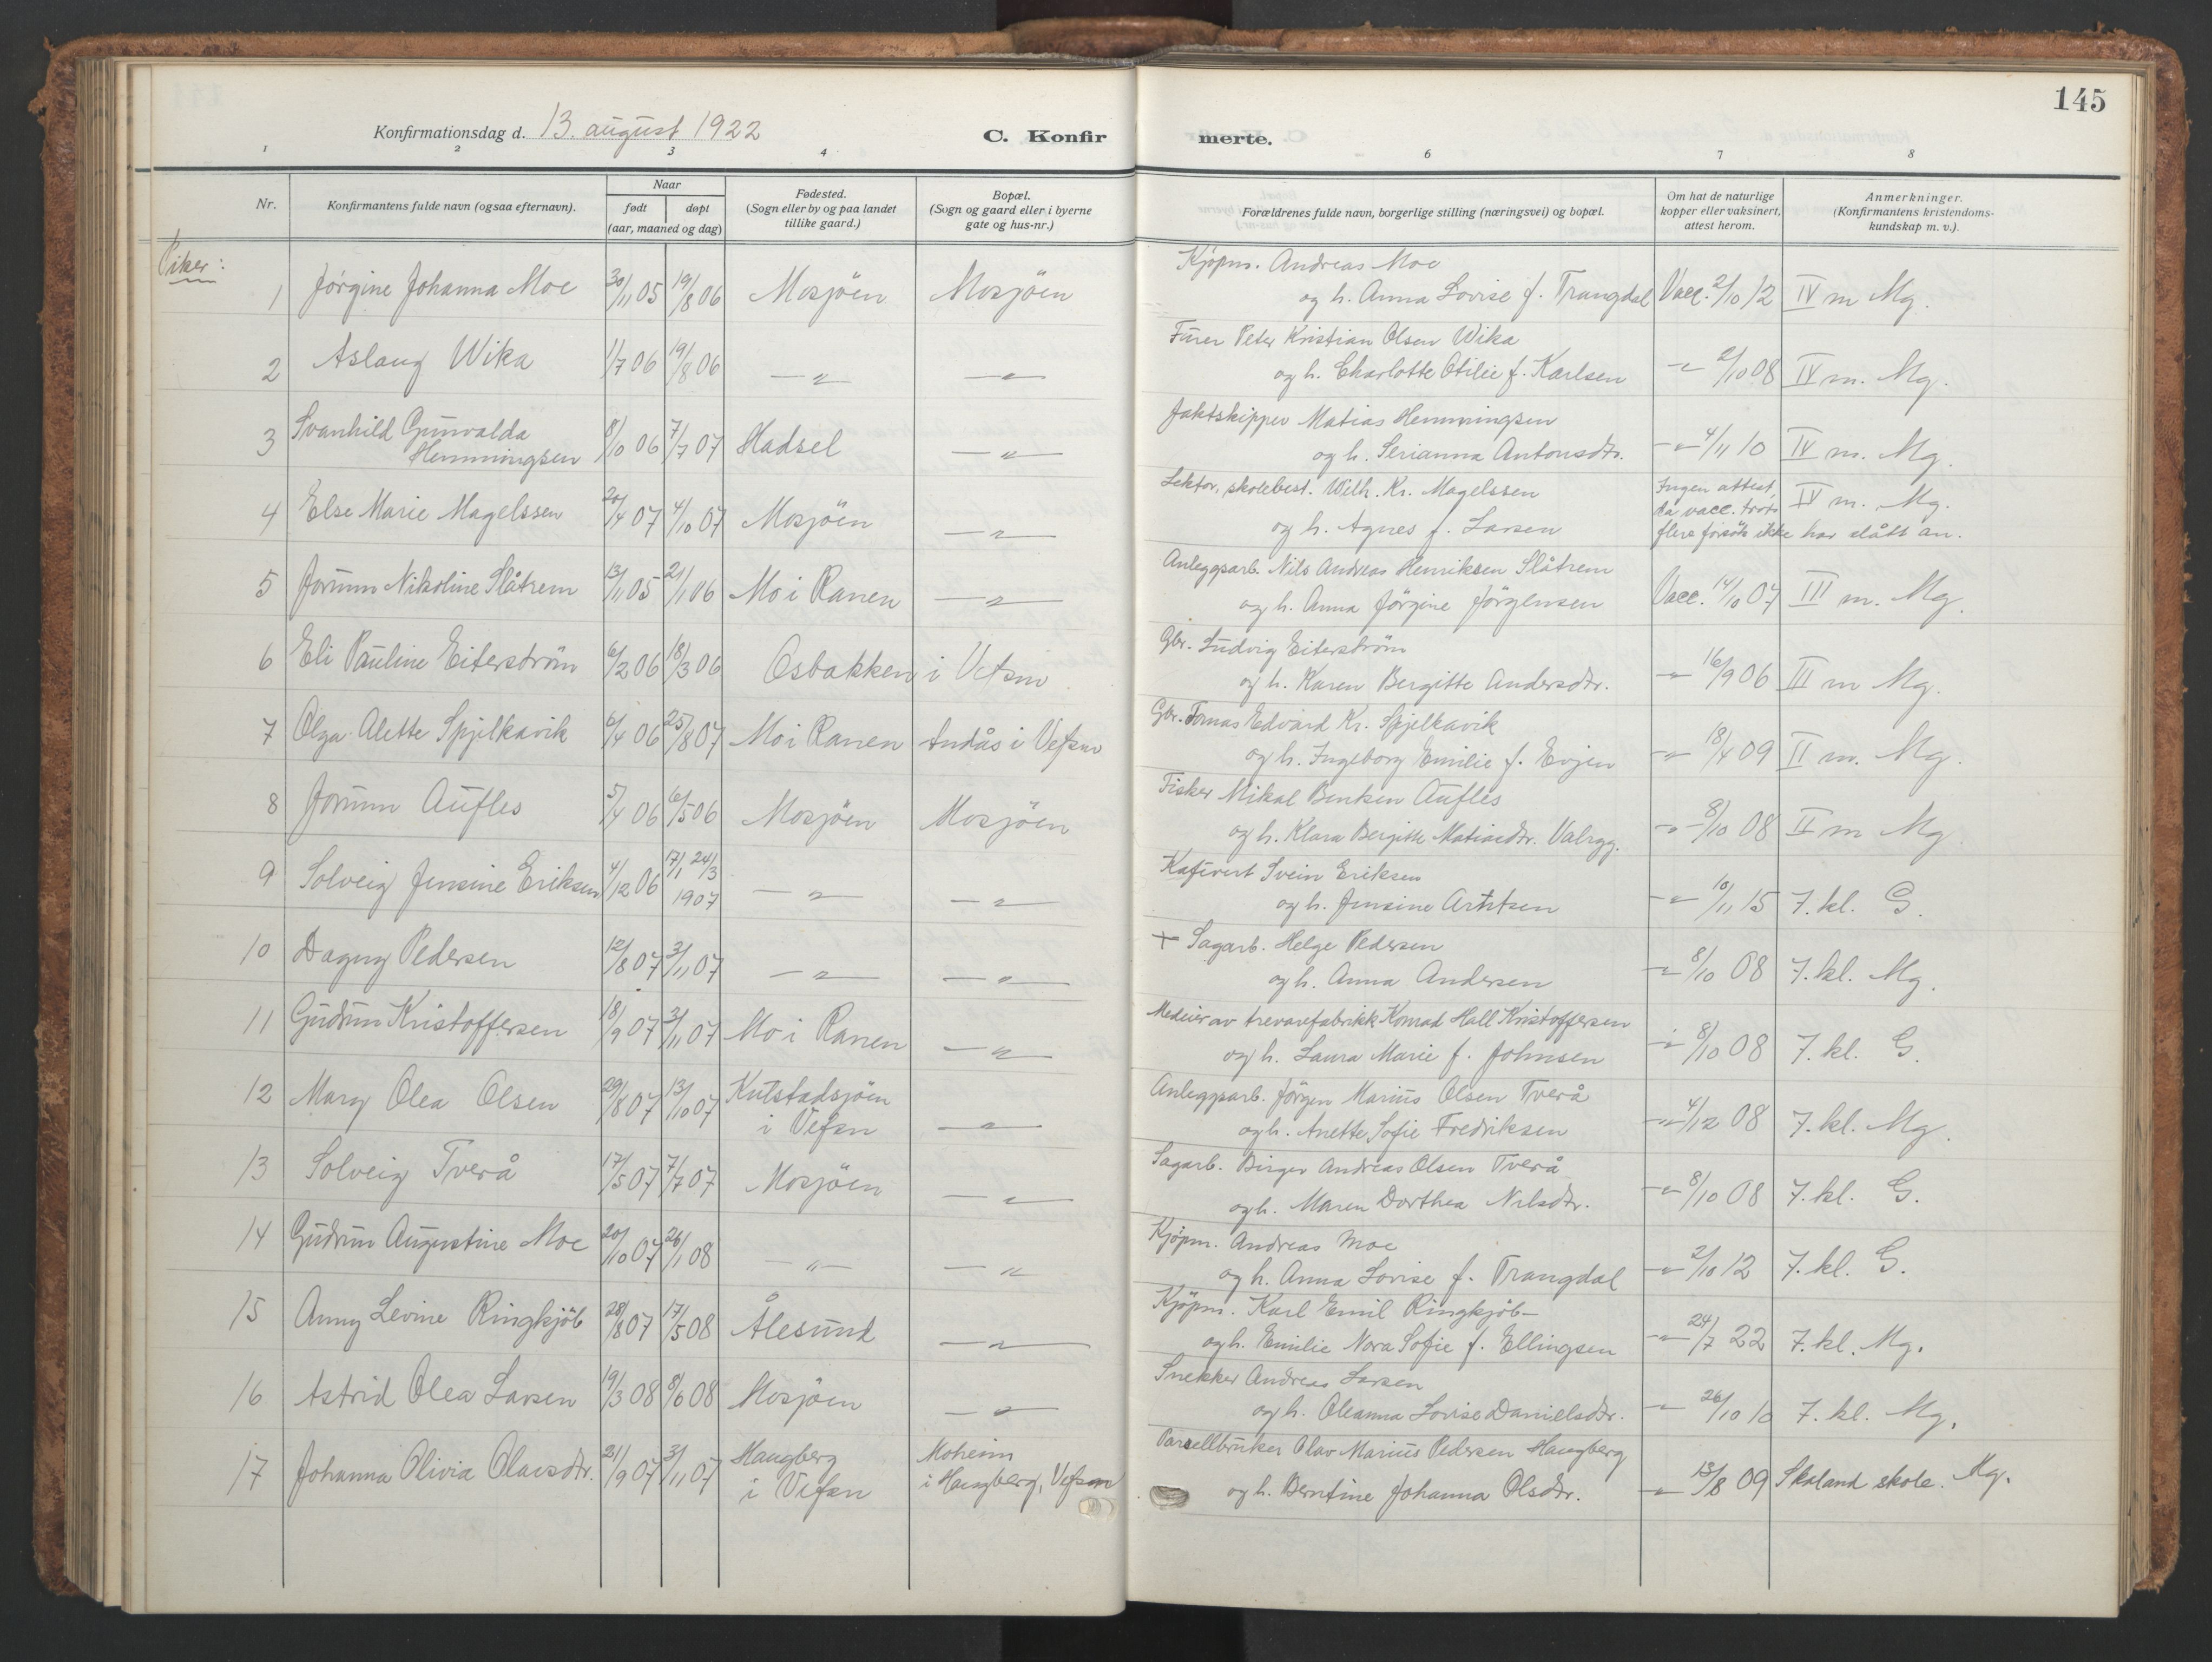 145
Konfirmationsdag d. 13. august 1922
C. Konfirmerte.
1 2 3 4 6 7 8
Nr.
Konfirmantens fulde navn (ogsaa efternavn).
Naar
født døpt
(aar, maaned og dag)
Fødested.
(Sogn eller by og paa landet
tillike gaard.)
Bopæl.
(Sogn og gaard eller i byerne
gate og hus-nr.)
Forældrenes fulde navn, borgerlige stilling (næringsvei) og bopæl.
Om hat de naturlige
kopper eller vaksinert,
attest herom.
Anmerkninger.
(Konfirmantens kristendoms-
kundskap m. v.).
Piker:
1 Jørgine Johanna Moe 30/11 05 19/8 06 Mosjöen Mosjöen Kjøpm. Andreas Moe
og h. Anna Lovise f. Trangdal Vacc. 2/10 12 IV m Mg.
2 Aslaug Wika 1/7 06 19/8 06 —„— —„— Furer Peter Kristian Olsen Wika
og h. Charlotte Otilie f. Karlsen —„— 2/10 08 IV m. Mg.
3 Svanhild Gunvalda
Hemmingsen 8/10 06 7/7 07 Hadsel —„— Jaktskipper Matias Hemmingsen
og h. Serianna Antonsdtr. —„— 4/11 10 IV m. Mg.
4 Else Marie Magelssen 20/4 07 4/10 07 Mosjöen —„— Lektor, skolebest. Wilh. Kr. Magelssen
og h. Agnes f. Larsen Ingen attest,
da vacc. trots
flere forsök ikke har slått an. IV m. Mg.
5 Jorunn Nikoline Slåtrem 13/11 05 21/1 06 Mo i Ranen —„— Anleggsarb. Nils Andreas Henriksen Slåtrem
og h. Anna Jörgine Jörgensen Vacc. 14/10 07 III m. Mg.
6 Eli Pauline Eiterström 6/2 06 18/3 06 Osbakken i Vefsn Gbr. Ludvig Eiterström
og h. Karen Bergitte Andersdtr. —„— 16/9 06 III m Mg.
7 Olga Alette Spjelkavik 6/4 06 25/8 07 Mo i Ranen Andås i Vefsn Gbr. Tomas Edvard Kr. Spjelkavik
og h. Ingeborg Emilie f. Evjen —„— 18/4 09 II m. Mg.
8 Jorunn Aufles 5/4 06 6/5 06 Mosjöen Mosjöen Fisker Mikal Bentsen Aufles
og h. Klara Bergitte Matiasdtr. —„— 8/10 08 II m Mg
9 Solveig Jensine Eriksen 4/12 06 17/1 24/3
1907 —„— —„— Kafévert Svein Eriksen
og h. Jensine Arntsen —„— 10/11 15 7. kl. G.
10 Dagny Pedersen 12/8 07 3/11 07 —„— —„— + Sagarb. Helge Pedersen
og h. Anna Andersen —„— 8/10 08 7. kl. Mg.
11 Gudrun Kristoffersen 18/9 07 3/11 07 Mo i Ranen —„— Medeier av trevarefabrikk Konrad Hall Kristoffersen
og h. Laura Marie f. Johnsen —„— 8/10 08 7. kl. G.
12 Mary Olea Olsen 29/8 07 13/10 07 Kulstadsjöen
i Vefsn —„— Anleggsarb. Jörgen Marius Olsen Tverå
og h. Anette Sofie Fredriksen —„— 4/12 08 7. kl. Mg.
13 Solveig Tverå 17/5 07 7/7 07 Mosjöen —„— Sagarb. Birger Andreas Olsen Tverå
og h. Maren Dorthea Nilsdtr. —„— 8/10 08 7. kl. G.
14 Gudrun Augustine Moe 20/10 07 26/1 08 —„— —„— Kjöpm. Andreas Moe
og h. Anna Lovise f. Trangdal —„— 2/10 12 7. kl. G.
15 Anny Levine Ringkjöb 28/8 07 17/5 08 Ålesund —„— Kjöpm. Karl Emil Ringkjöb
og h. Emilie Nora Sofie f. Ellingsen —„— 24/7 22 7. kl. Mg.
16 Astrid Olea Larsen 19/3 08 8/6 08 Mosjöen —„— Snekker Andreas Larsen
og h. Oleanna Lovise Danielsdtr. —„— 26/10 10 7. kl. Mg.
17 Johanna Olivia Olavsdtr. 21/9 07 3/11 07 Haugberg
i Vefsn Moheim
i Haugberg, Vefsn Parsellbruker Olav Marius Pedersen Haugberg
og h. Berntine Johanna Olsdtr. —„— 13/8 09 Skaland skole. Mg.